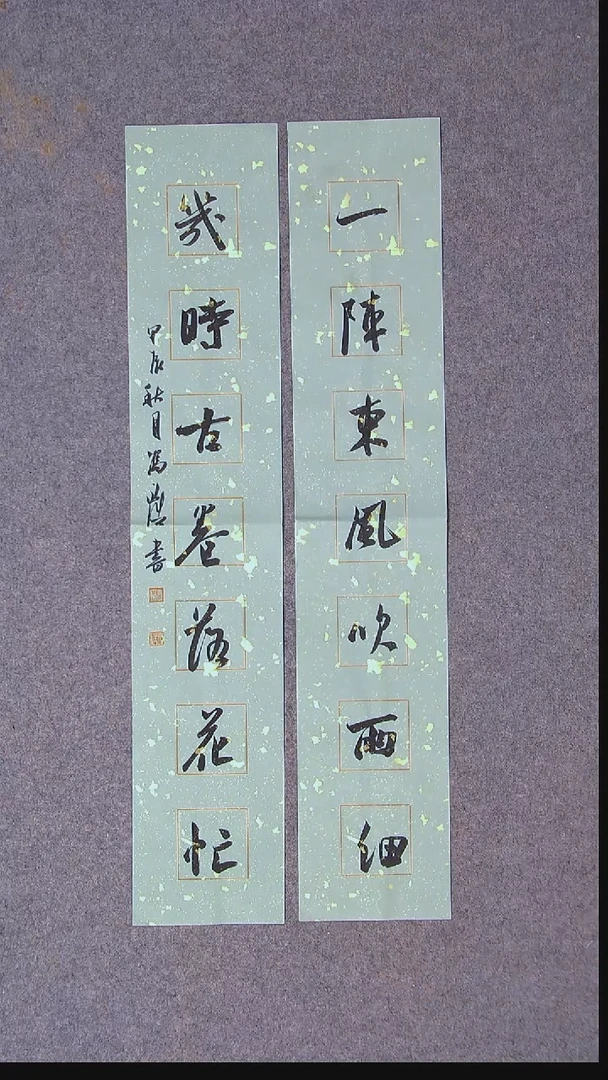 一陣東風吹雨細
幾時古巷落花忙
甲辰秋月馮書